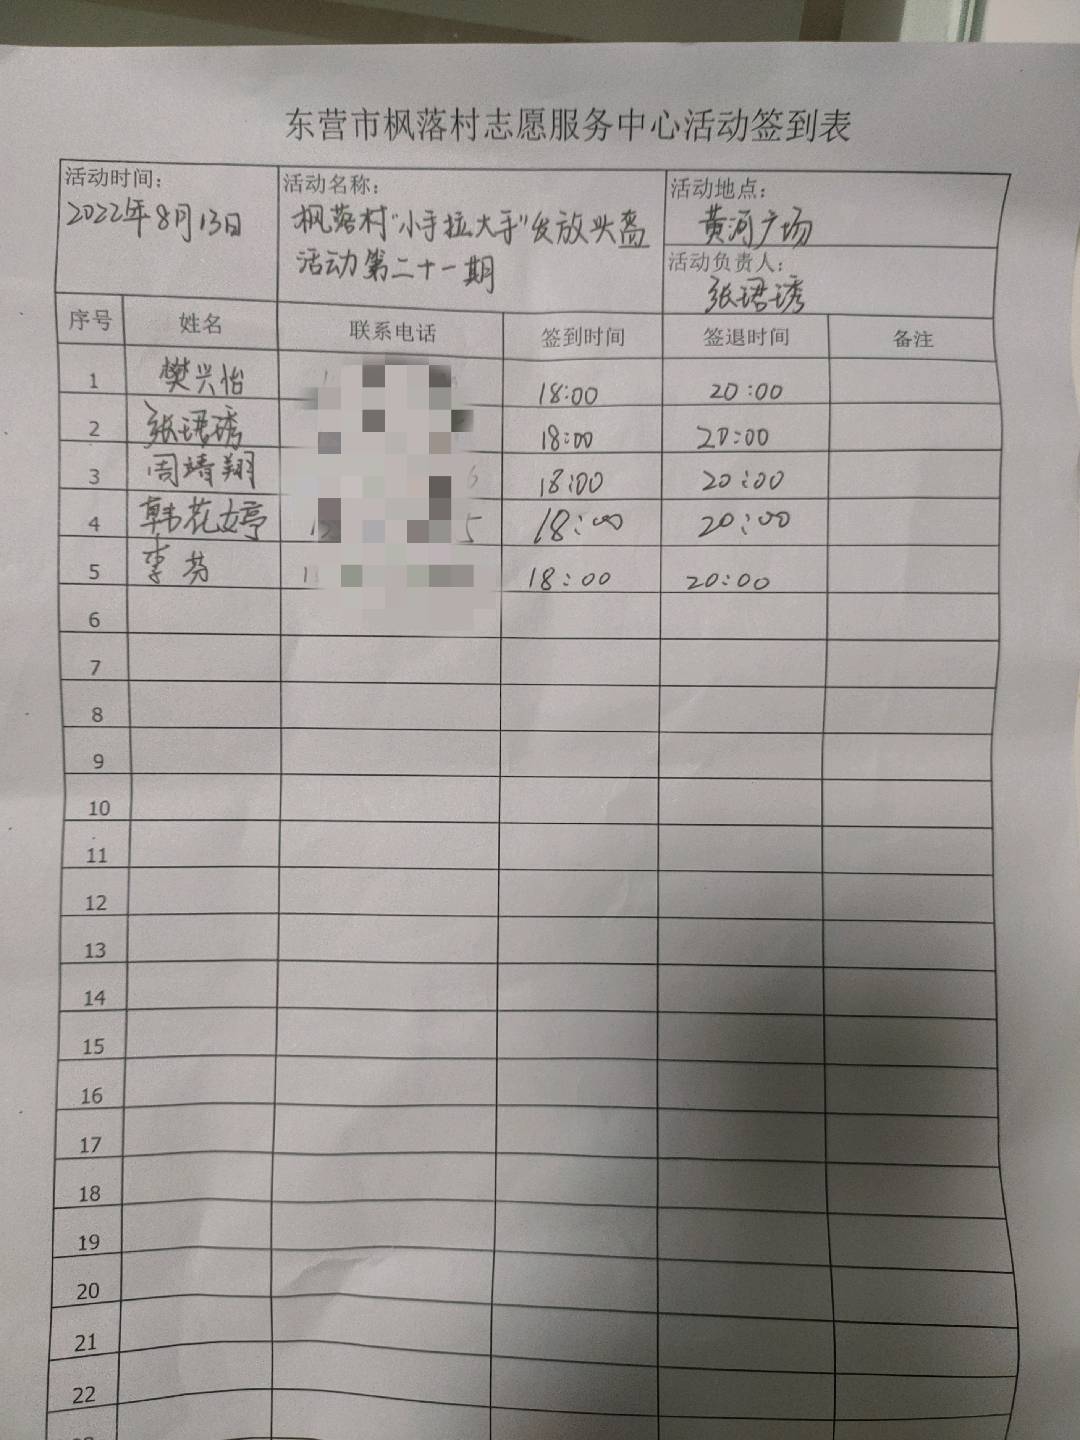 东营市枫落村志愿服务中心活动签到表
活动时间：
2022年8月13日
活动名称：
枫落村“小手拉大手”发放头盔
活动第二十一期
活动地点：
黄河广场
活动负责人：
张珺琇
序号 姓名 联系电话 签到时间 签退时间 备注
1 樊兴怡 18:00 20:00
2 张珺琇 18:00 20:00
3 周靖翔 18:00 20:00
4 韩花婷 18:00 20:00
5 李芬 18:00 20:00
6
7
8
9
10
11
12
13
14
15
16
17
18
19
20
21
22